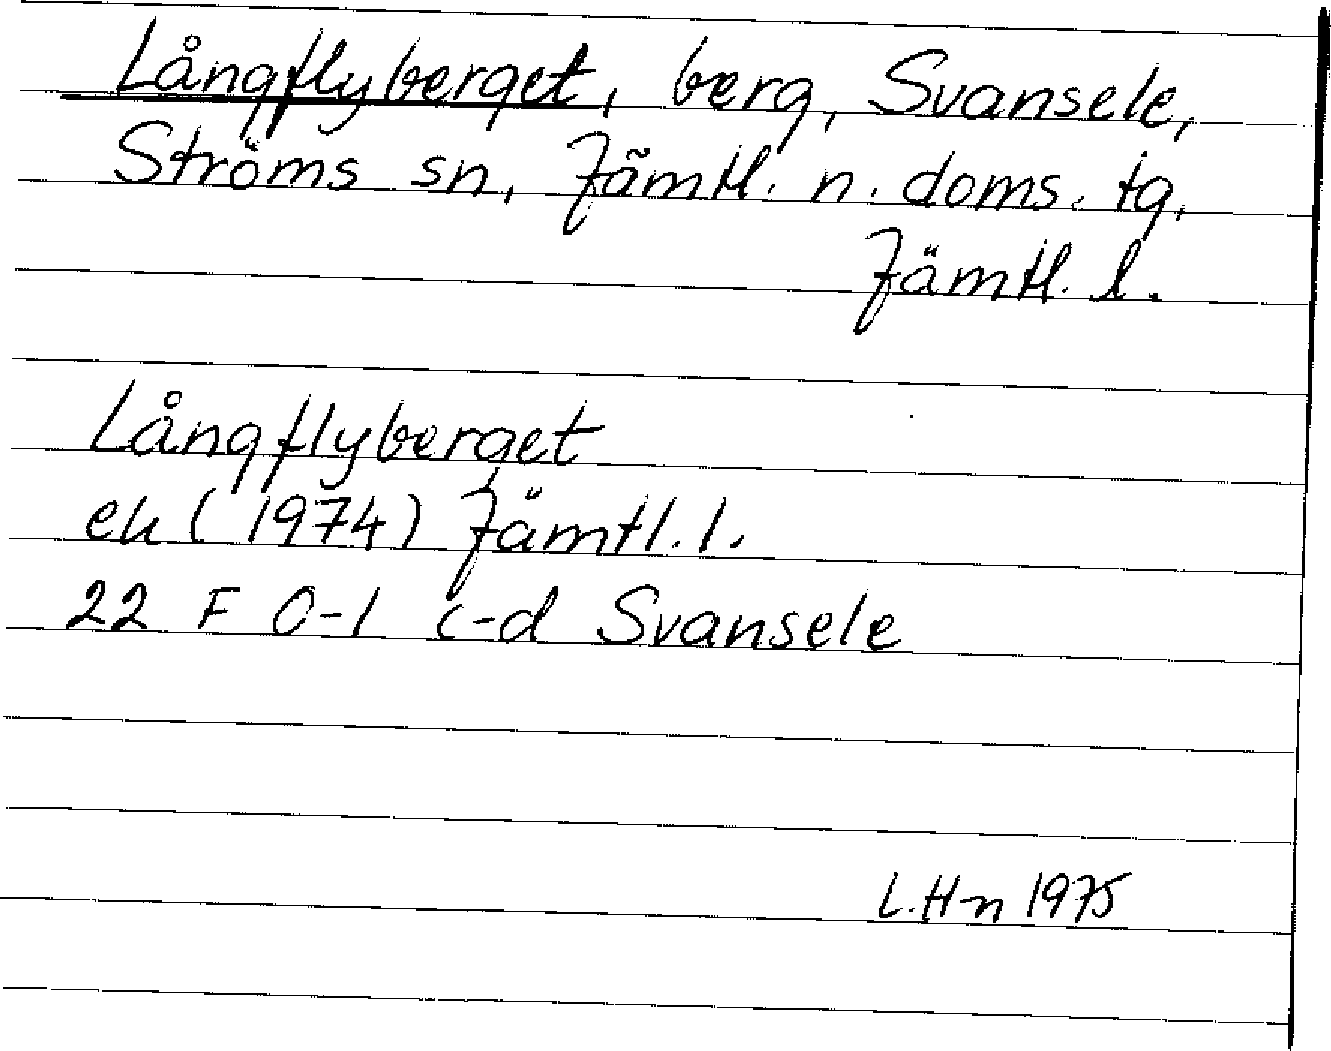 Långflyberget, berg, Svansele,
Ströms sn, Jämtl. n. doms. tg,
Jämtl. l.
Långflyberget
ek (1974) Jämtl. l.
22 F 0-1 c-d Svansele
L.Hn 1975